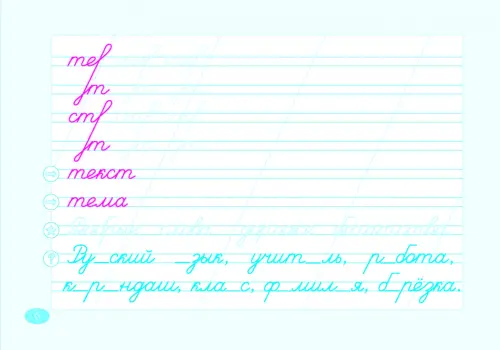 те
т
ст
т
текст
тема
Ру_ский _зык, учит_ль, р_бота,
к_р_ндаш, кла_с, ф_мил_я, б_рёзка.